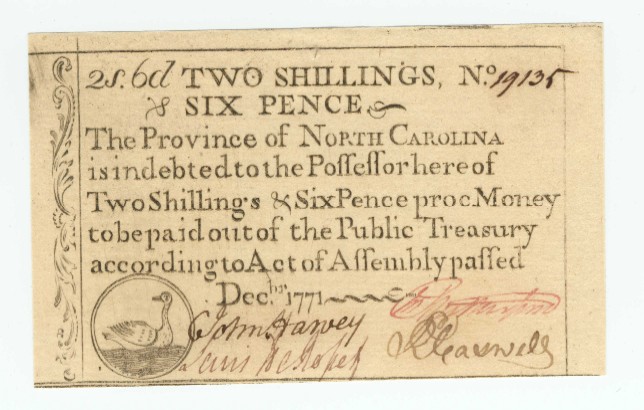 2s. 6d TWO SHILLINGS, No. 19135
& SIX PENCE
The Province of NORTH CAROLINA
is indebted to the Poſſeſſor here of
Two Shillings & Six Pence proc. Money
to be paid out of the Public Treasury
according to Act of Aſſembly paſſed
Decbr. 1771
John Harvey
Lewis De Roſſet
R Caswell